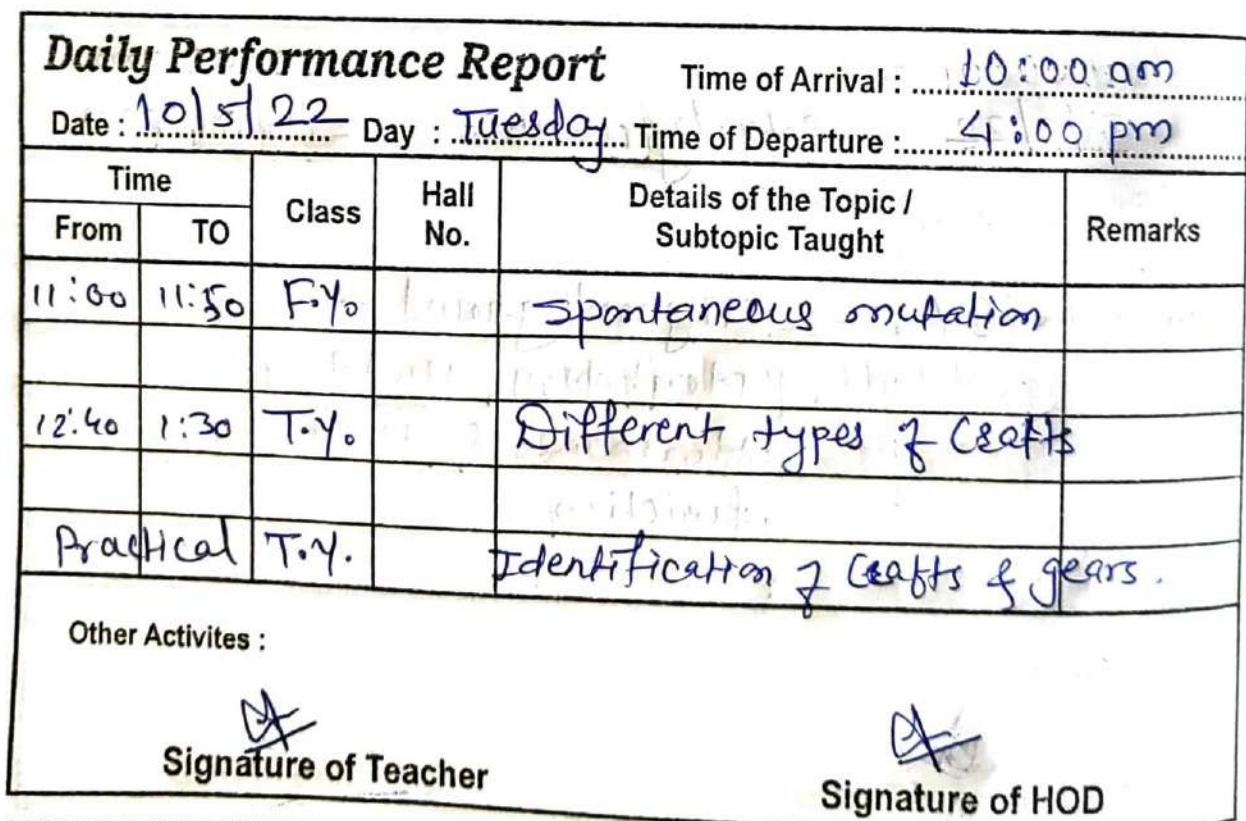 Daily Performance Report Time of Arrival : 10:00 am
Date : 10/5/22 Day : Tuesday Time of Departure : 4:00 pm
Time Class Hall No. Details of the Topic / Subtopic Taught Remarks
From TO
11:00 11:50 F.Y. Spontaneous mutation
12:40 1:30 T.Y. Different types of Crafts
Practical T.Y. Identification of Crafts & gears.
Other Activites :
Signature of Teacher Signature of HOD